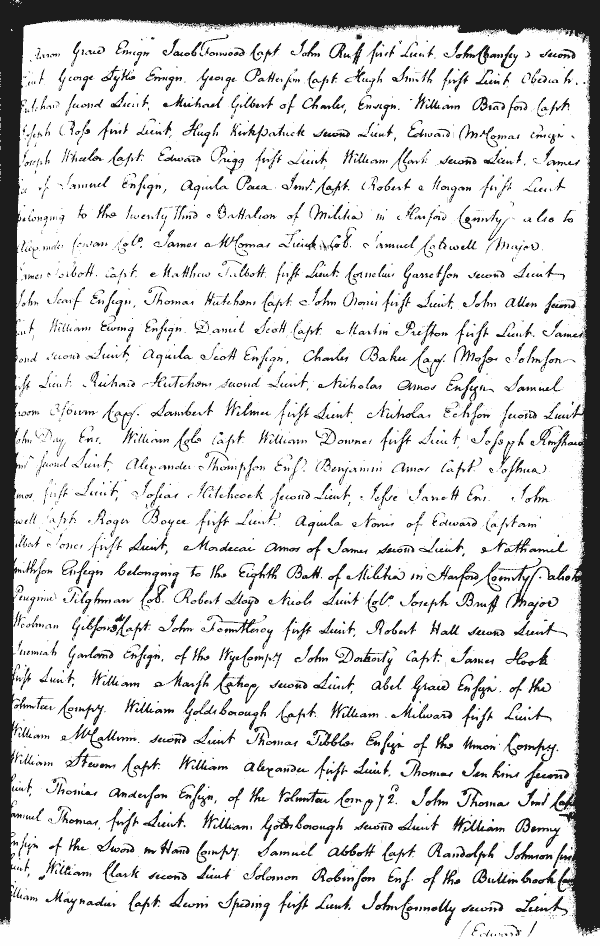 Aaron Grace Ensign Jacob Forwood Capt John Ruff first Lieut. John Chansey second
George Lytle Ensign. George Patterson Capt Hugh Smith first Lieut Obediah
second Lieut, Michael Gilbert of Charles, Ensign. William Bradford Capt.
Joseph Rose first Lieut, Hugh Kirkpatrick second Lieut, Edward McComas Ensign
Joseph Wheeler Capt. Edward Prigg first Lieut William Clark second Lieut, James
of Samuel Ensign, Aquila Paca Junr. Capt. Robert Morgan first Lieut
belonging to the twenty third Battalion of Militia in Harford County also to
Alexander Cowan Colo. James McComas Lieut. Col. Samuel Calwell Major.
James Talbott. Capt. Matthew Talbott first Lieut Cornelius Garretson second Lieut
John Scarf Ensign, Thomas Hutchens Capt John first Lieut, John Allen second
William Ewing Ensign. Daniel Scott Capt. Martin Preston first Lieut. James
second Lieut, Aquila Scott Ensign, Charles Baker Capt. Moses Johnson
first Lieut. Richard Hutchens second Lieut, Nicholas Amos Ensign Samuel
Capt. Lambert Wilmer first Lieut Nicholas second Lieut
John Day Ens. William Cole Capt William Downes first Lieut, Joseph Renshaw
second Lieut, Alexander Thompson Ens. Benjamin Amos Capt Joshua
Amos first Lieut, Josias Hitchcock second Lieut, Jesse Jarrett Ens. John
Capt. Roger Boyce first Lieut. Aquila Norris of Edward Captain
Gilbert Jones first Lieut, Mordecai Amos of James second Lieut, Nathaniel
Smithson Ensign belonging to the Eighth Batt. of Militia in Harford County. also to
Peregrine Tilghman Col. Robert Lloyd Nicols Lieut Colo. Joseph Bruff Major
Woolman Gibson Capt John first Lieut, Robert Hall second Lieut
Jeremiah Garland Ensign, of the Wye Compy John Dockerty Capt. James Hook
first Lieut, William Marsh Catrop second Lieut, Abel Grace Ensign of the
Volunteer Compy. William Goldsborough Capt. William Milward first Lieut
William McCallum, second Lieut Thomas Tibbles Ensign of the Union Compy.
William Stevens Capt. William Alexander first Lieut, Thomas Jenkins second
Lieut, Thomas Anderson Ensign, of the Volunteer Compy 2d. John Thomas Junr Capt
Samuel Thomas, first Lieut. William Goldsborough second Lieut William Berry
Ensign of the Sword in Hand Compy. Samuel Abbott Capt. Randolph Johnson first
Lieut, William Clark second Lieut Solomon Robinson Ens. of the Bullinbrook
William Maynadier Capt. Levin Speding first Lieut. John Connolly second Lieut
(Edward)